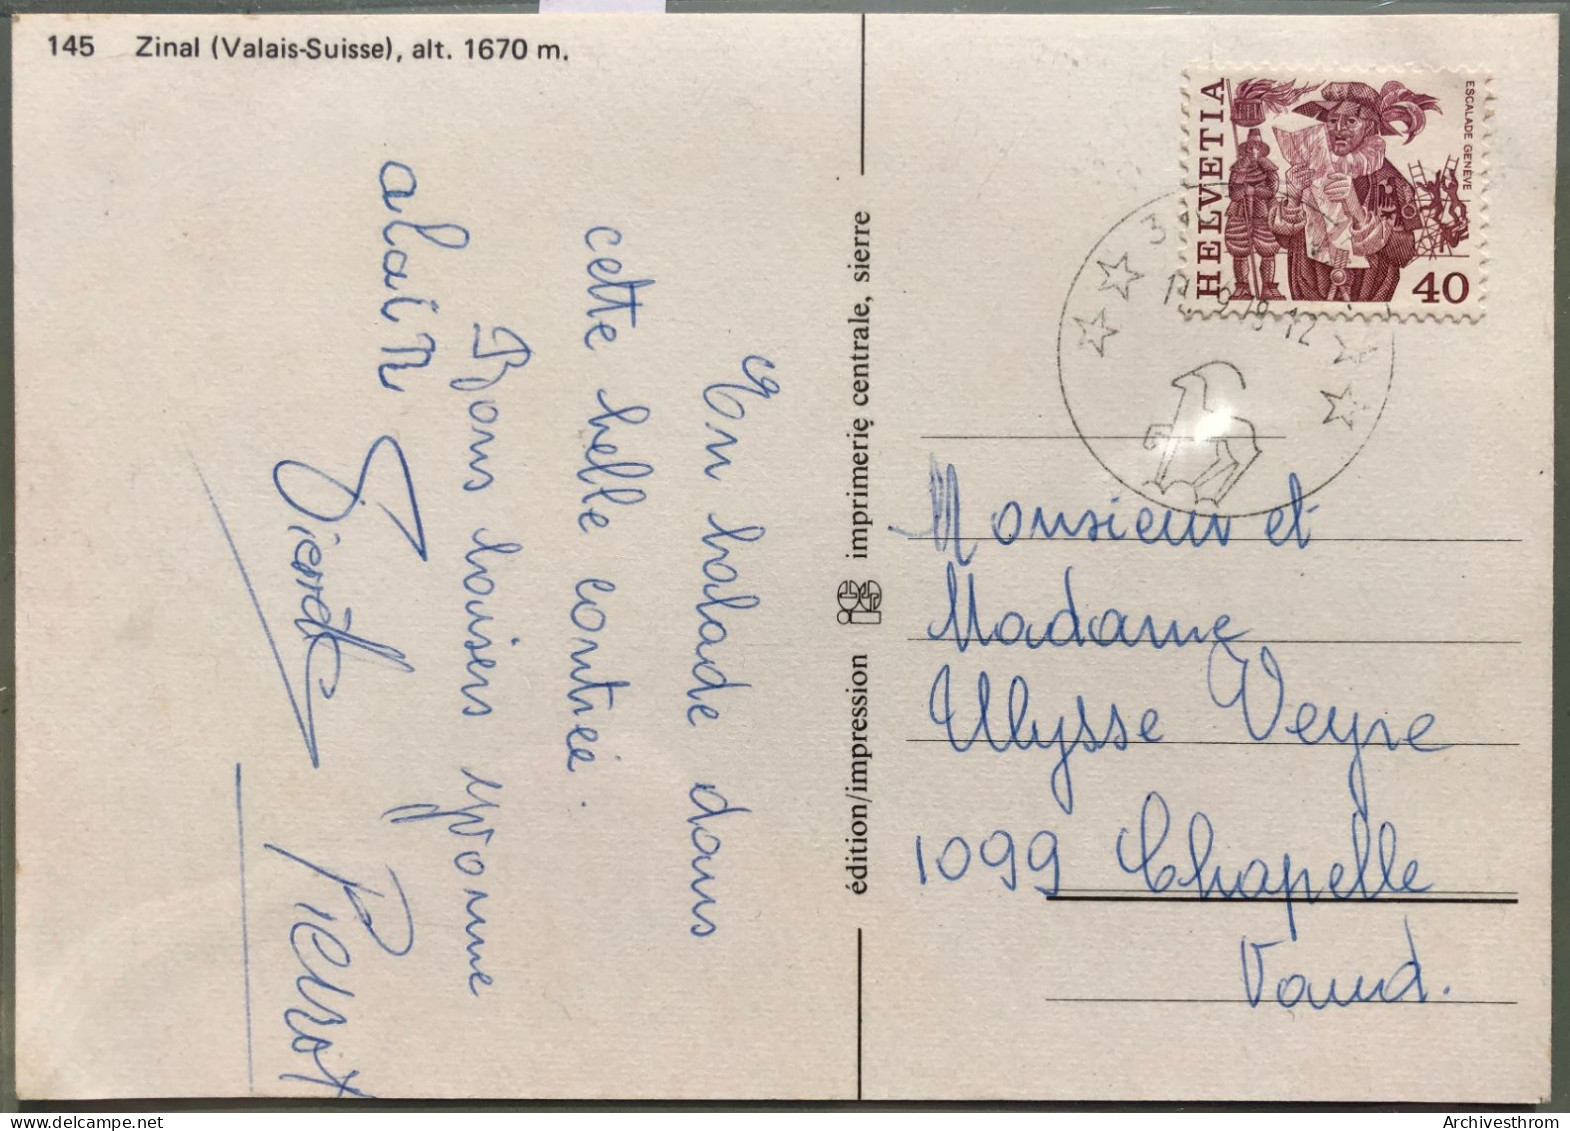 145 Zinal (Valais-Suisse), alt. 1670 m.
En balade dans
cette belle contrée.
Bons baisers Yvonne
alain
Pierrot
édition/impression ies imprimerie centrale, sierre
HELVETIA
ESCALADE GENÈVE
40
Monsieur et
Madame
Ulysse Veyre
1099 Chapelle
Vaud.
Archivesthrom